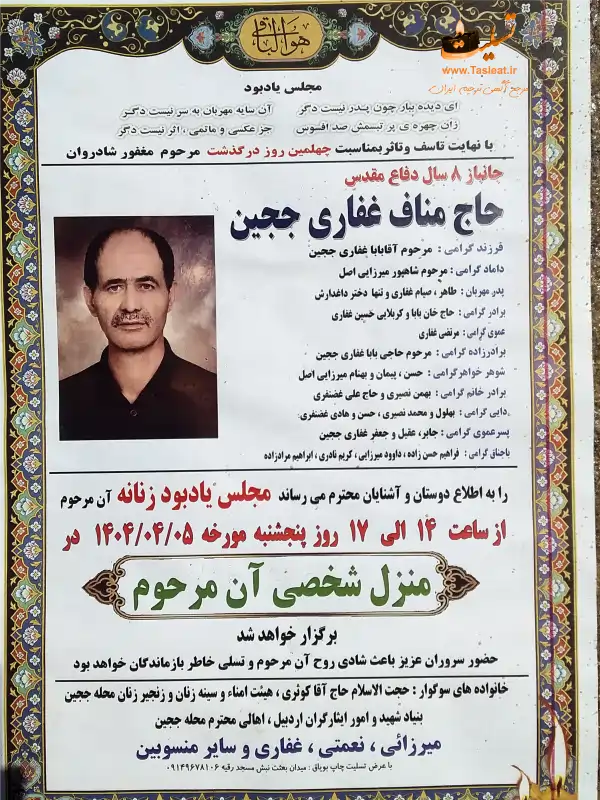 هوالباقی
تسلیت
www.Tasleat.ir
مرجع آگهی ترحیم ایران
مجلس یادبود
ای دیده ببار چون پدر نیست دگر    آن سایه مهربان به سر نیست دگر
زان چهره ی پر تبسمش صد افسوس    جز عکسی و ماتمی ، اثر نیست دگر
با نهایت تاسف وتاثربمناسبت چهلمین روز درگذشت مرحوم مغفور شادروان
جانباز ۸ سال دفاع مقدس
حاج مناف غفاری ججین
فرزند گرامی : مرحوم آقابابا غفاری ججین
داماد گرامی : مرحوم شاهپور میرزایی اصل
پدر مهربان : طاهر ، صیام غفاری و تنها دختر داغدارش
برادر گرامی : حاج خان بابا و کربلایی حسین غفاری
عموی گرامی : مرتضی غفاری
برادرزاده گرامی : مرحوم حاجی بابا غفاری ججین
شوهر خواهرگرامی : حسن ، پیمان و بهنام میرزایی اصل
برادر خانم گرامی : بهمن نصیری و حاج علی غضنفری
دایی گرامی : بهلول و محمد نصیری ، حسن و هادی غضنفری
پسرعموی گرامی : جابر، عقیل و جعفر غفاری ججین
باجناق گرامی : فراهیم حسن زاده ، داوود میرزایی ، کریم نادری ، ابراهیم مرادزاده
را به اطلاع دوستان و آشنایان محترم می رساند مجلس یادبود زنانه آن مرحوم
از ساعت ۱۴ الی ۱۷ روز پنجشنبه مورخه ۱۴۰۴/۰۴/۰۵ در
منزل شخصی آن مرحوم
برگزار خواهد شد
حضور سروران عزیز باعث شادی روح آن مرحوم و تسلی خاطر بازماندگان خواهد بود
خانواده های سوگوار : حجت الاسلام حاج آقا کوثری ، هیئت امناء و سینه زنان و زنجیر زنان محله ججین
بنیاد شهید و امور ایثارگران اردبیل ، اهالی محترم محله ججین
میرزائی ، نعمتی ، غفاری و سایر منسوبین
با عرض تسلیت چاپ بویاق : میدان بعثت نبش مسجد رقیه ۰۹۱۴۹۶۷۸۱۰۶